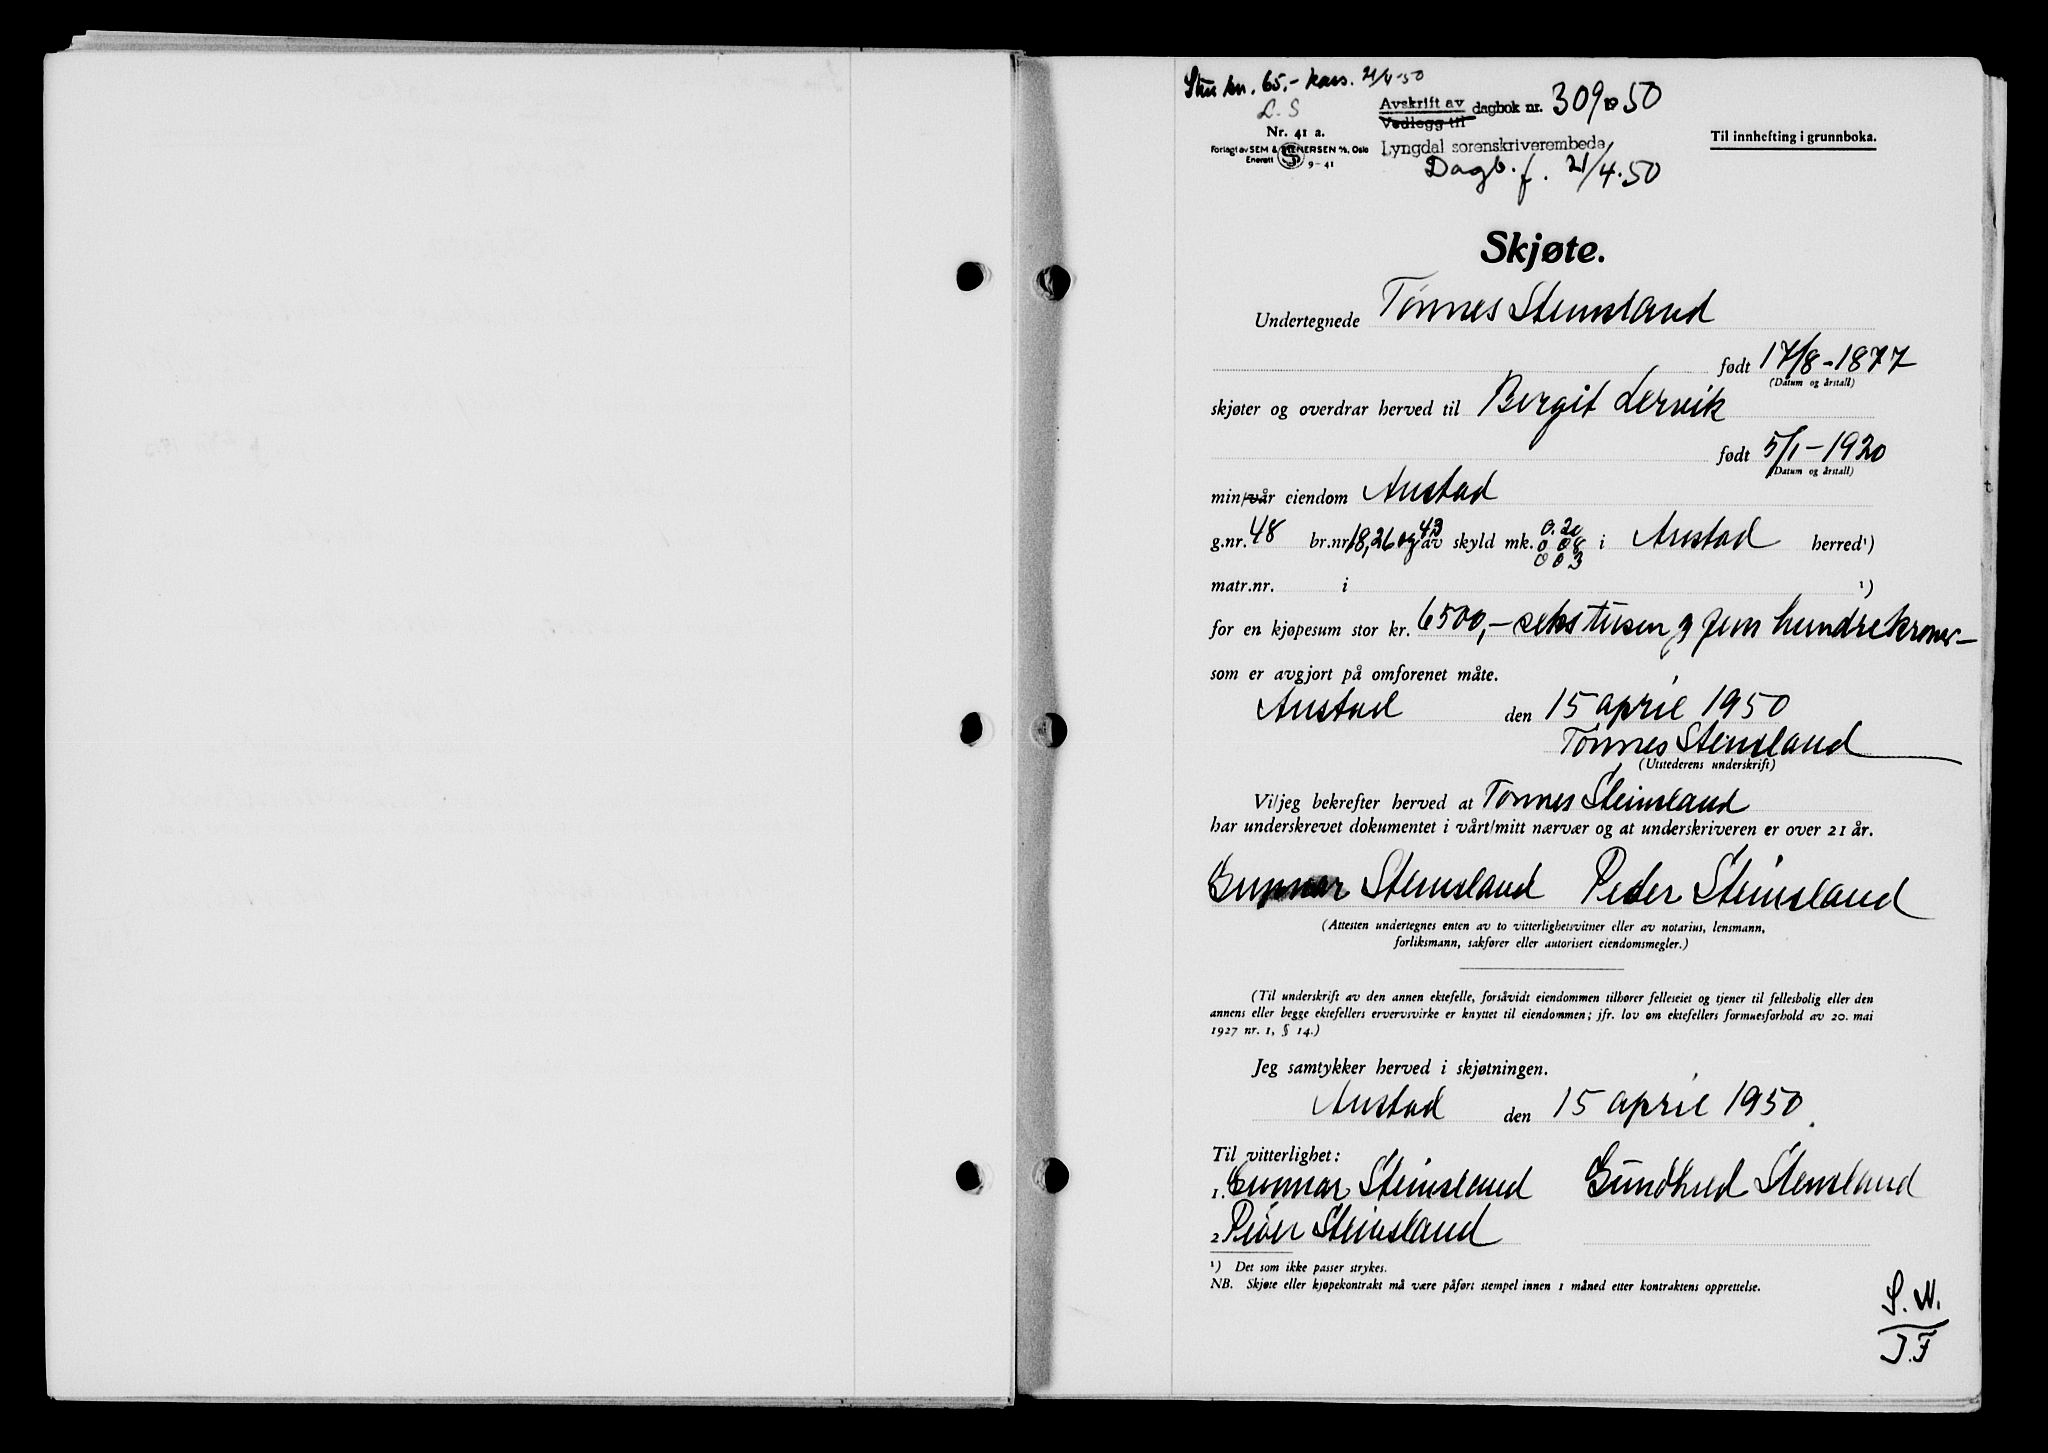 Stm kr. 65,- kass. 21/4-50
L. S
Avskrift av dagbok nr. 309 1950
Vedlegg til
Nr. 41 a.
Forlagt av SEM & STENERSEN A/S, Oslo
Enerett 9-41
Lyngdal sorenskriverembede
Dagb. f. 21/4.50
Til innhefting i grunnboka.
Skjøte.
Undertegnede Tønnes Steinsland
født 17/8-1877
(Datum og årstall)
skjøter og overdrar herved til Bergit Lervik
født 5/1-1920
(Datum og årstall)
min/vår eiendom Austad
g.nr. 48 br.nr. 18,26 og 43 av skyld mk. 0.20 0 08 0 03 i Austad herred¹)
matr.nr. i ¹)
for en kjøpesum stor kr. 6500,- seks tusen og fem hundre kroner-
som er avgjort på omforenet måte.
Austad den 15 april 1950
Tønnes Steinsland
(Utstederens underskrift)
Vi/jeg bekrefter herved at Tønnes Steinsland
har underskrevet dokumentet i vårt/mitt nærvær og at underskriveren er over 21 år.
Gunnar Steinsland Peder Steinsland
(Attesten undertegnes enten av to vitterlighetsvitner eller av notarius, lensmann,
forliksmann, sakfører eller autorisert eiendomsmegler.)
(Til underskrift av den annen ektefelle, forsåvidt eiendommen tilhører felleseiet og tjener til fellesbolig eller den
annens eller begge ektefellers ervervsvirke er knyttet til eiendommen; jfr. lov om ektefellers formuesforhold av 20. mai
1927 nr. 1, § 14.)
Jeg samtykker herved i skjøtningen.
Austad den 15 april 1950.
Til vitterlighet:
1. Gunnar Steinsland Gundhild Steinsland
2. Peder Steinsland
¹) Det som ikke passer strykes.
NB. Skjøte eller kjøpekontrakt må være påført stempel innen 1 måned etter kontraktens opprettelse.
S. N.
J.F